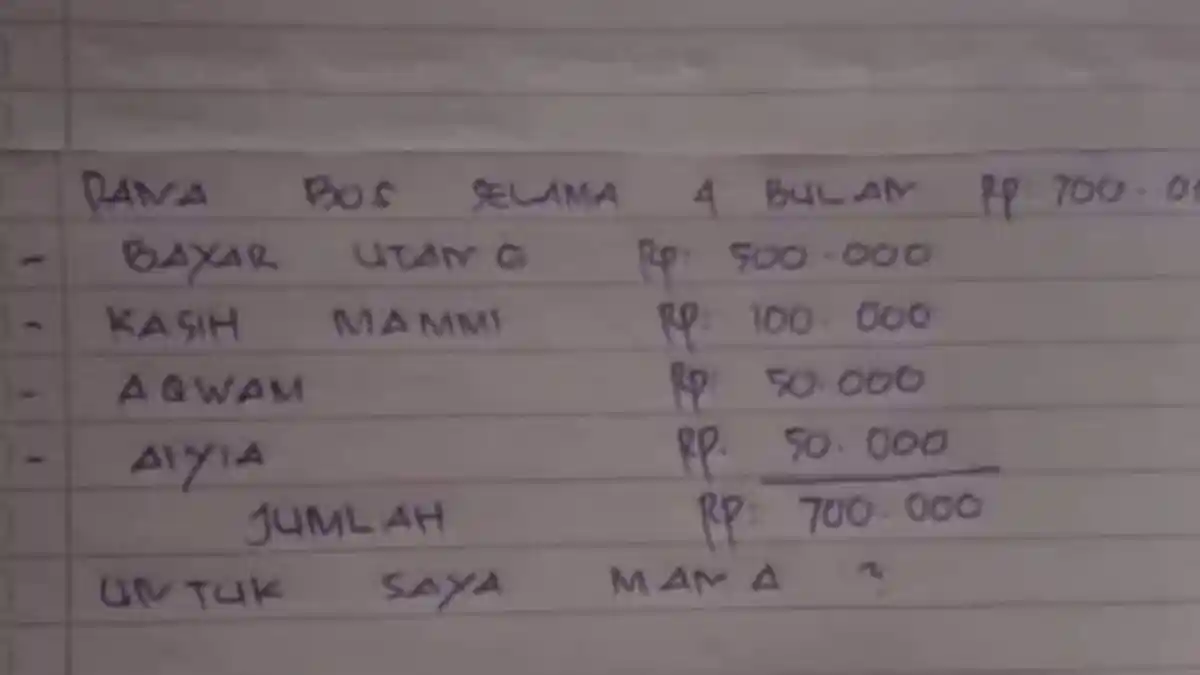 DANA BOS SELAMA 4 BULAN Rp 700.00
- BAYAR UTANG Rp. 500.000
- KASIH MAMMI Rp. 100.000
- AQWAM Rp. 50.000
- AIYIA Rp. 50.000
JUMLAH Rp. 700.000
UNTUK SAYA MANA ?